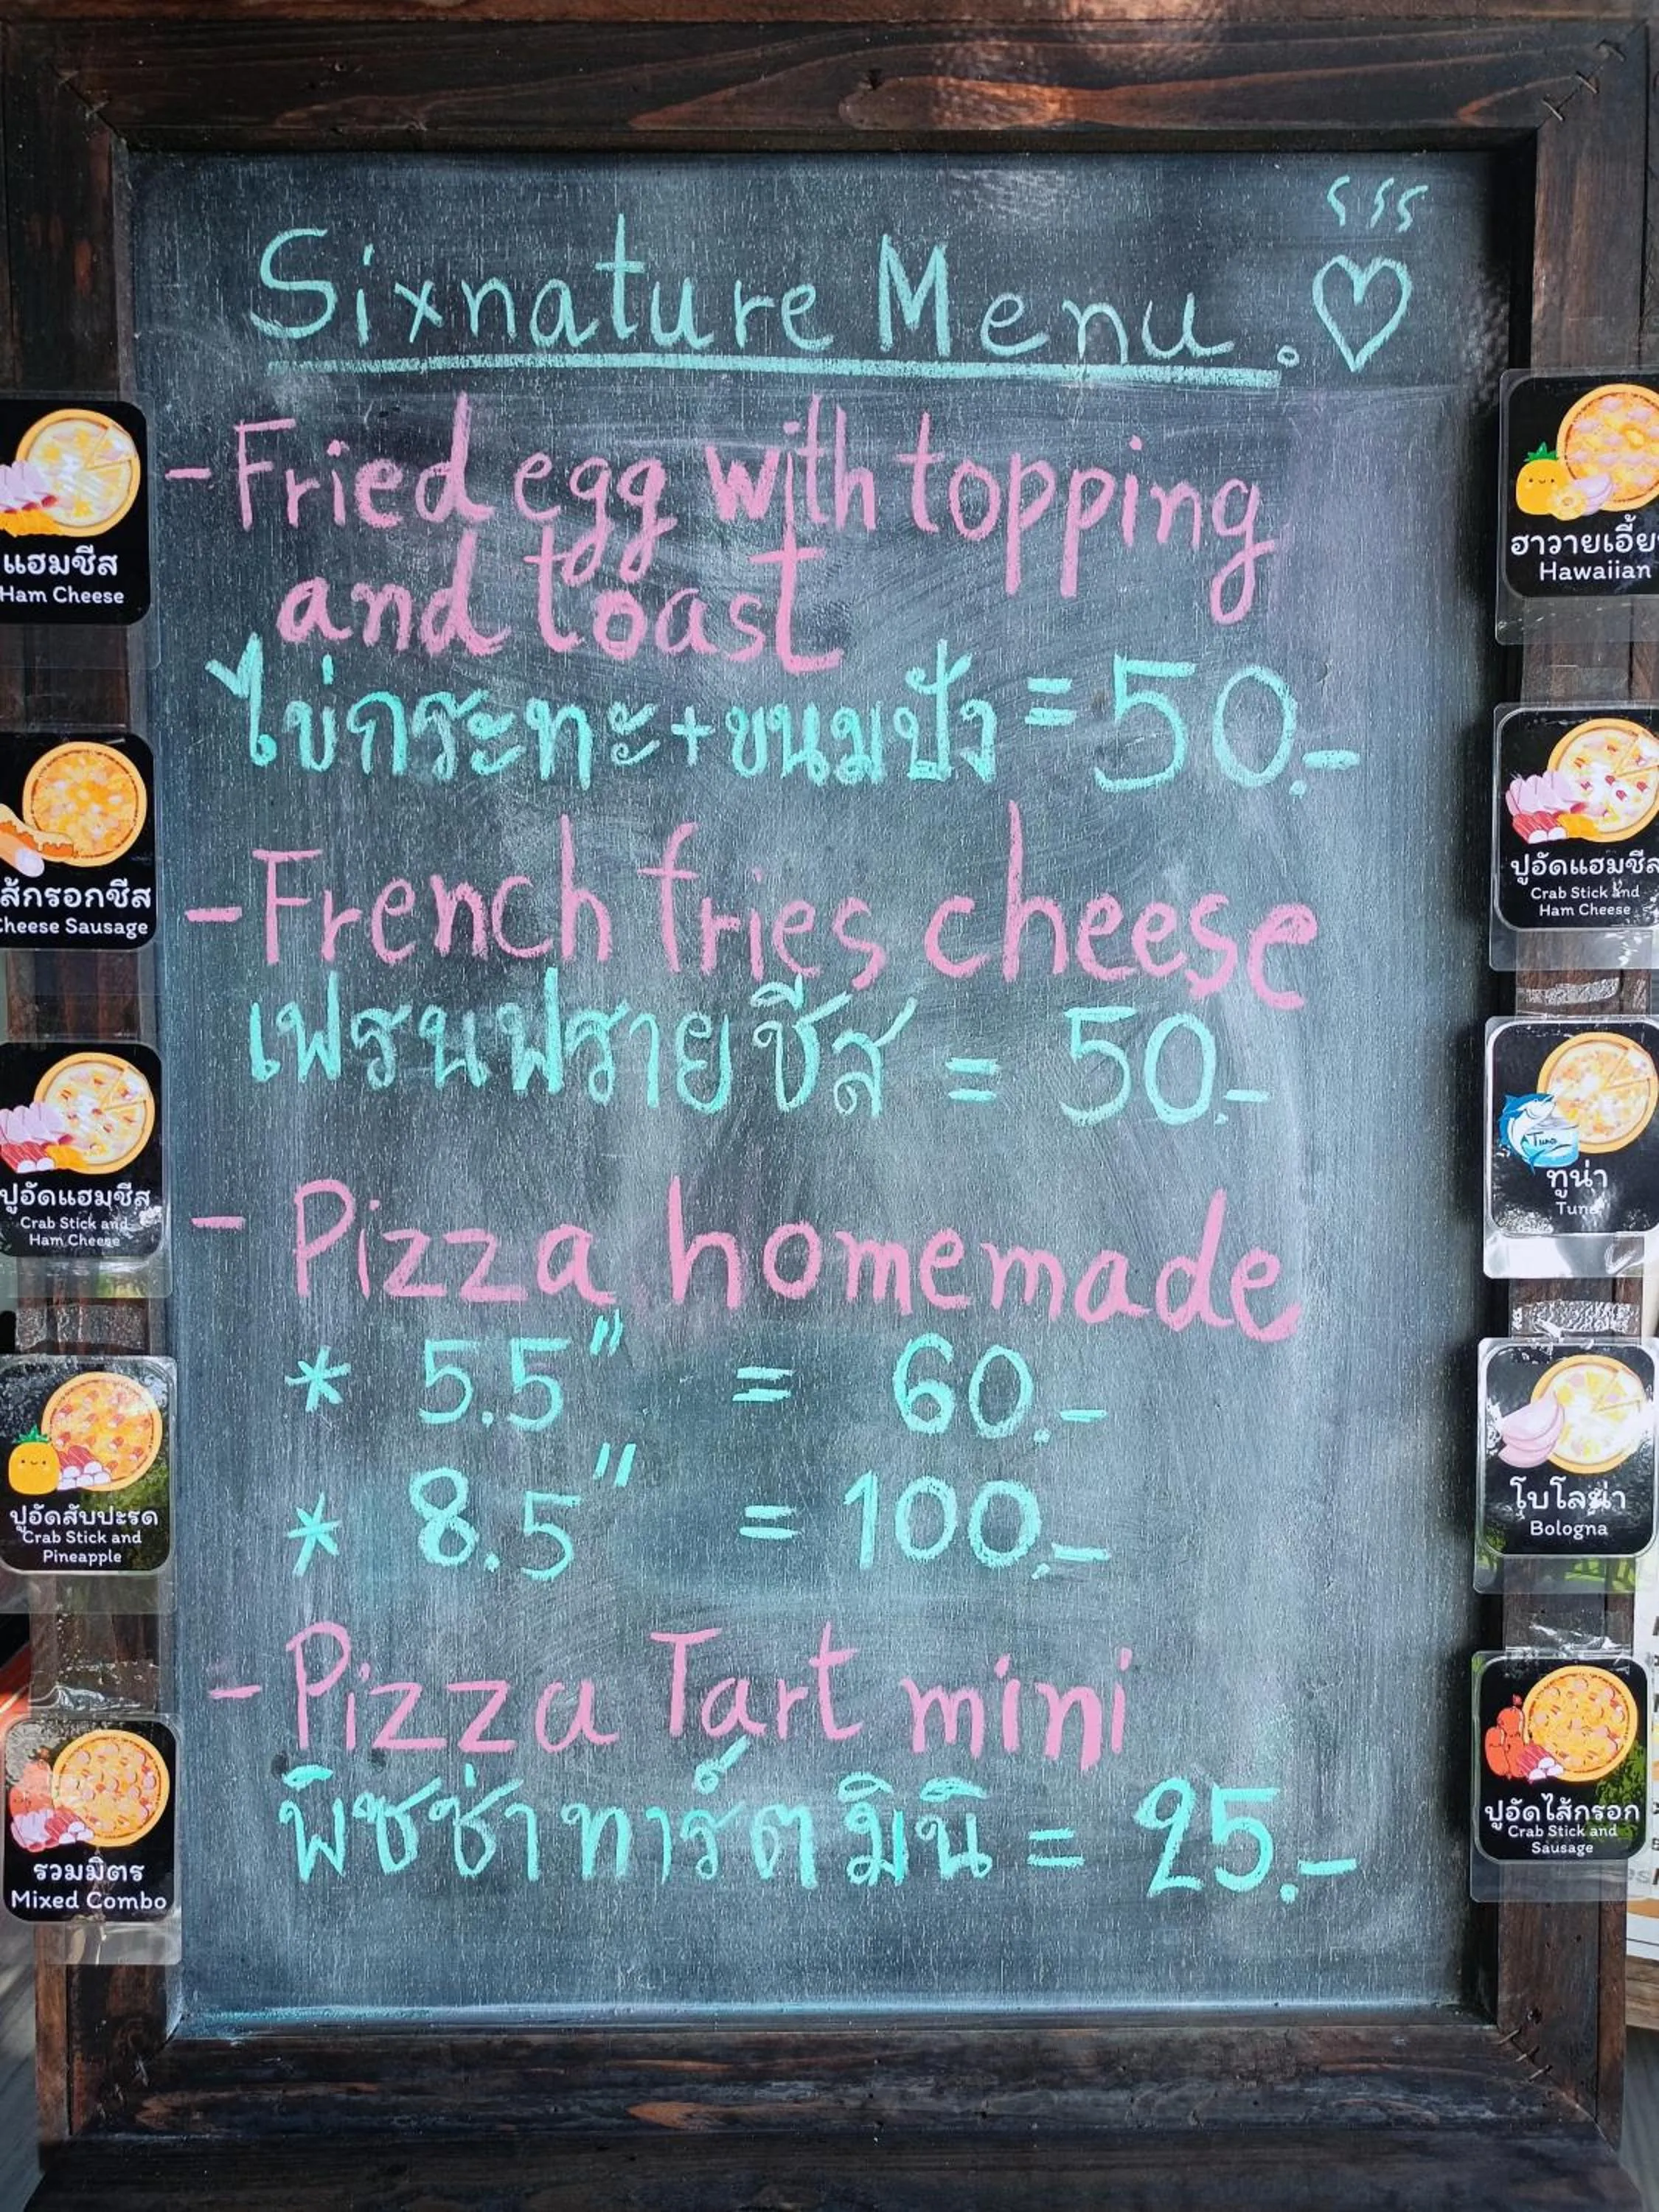 Sixnature Menu.
- Fried egg with topping
and toast
ไข่กระทะ+ขนมปัง = 50.-
- French fries cheese
เฟรนฟรายชีส = 50.-
- Pizza homemade
* 5.5" = 60.-
* 8.5" = 100.-
- Pizza Tart mini
พิซซ่าทาร์ตมินิ = 25.-
แฮมชีส
Ham Cheese
ส้กรอกชีส
Cheese Sausage
ปูอัดแฮมชีส
Crab Stick and
Ham Cheese
ปูอัดสับปะรด
Crab Stick and
Pineapple
รวมมิตร
Mixed Combo
ฮาวายเอี้ยน
Hawaiian
ปูอัดแฮมชีส
Crab Stick and
Ham Cheese
Tuna
ทูน่า
Tuna
โบโลน่า
Bologna
ปูอัดไส้กรอก
Crab Stick and
Sausage